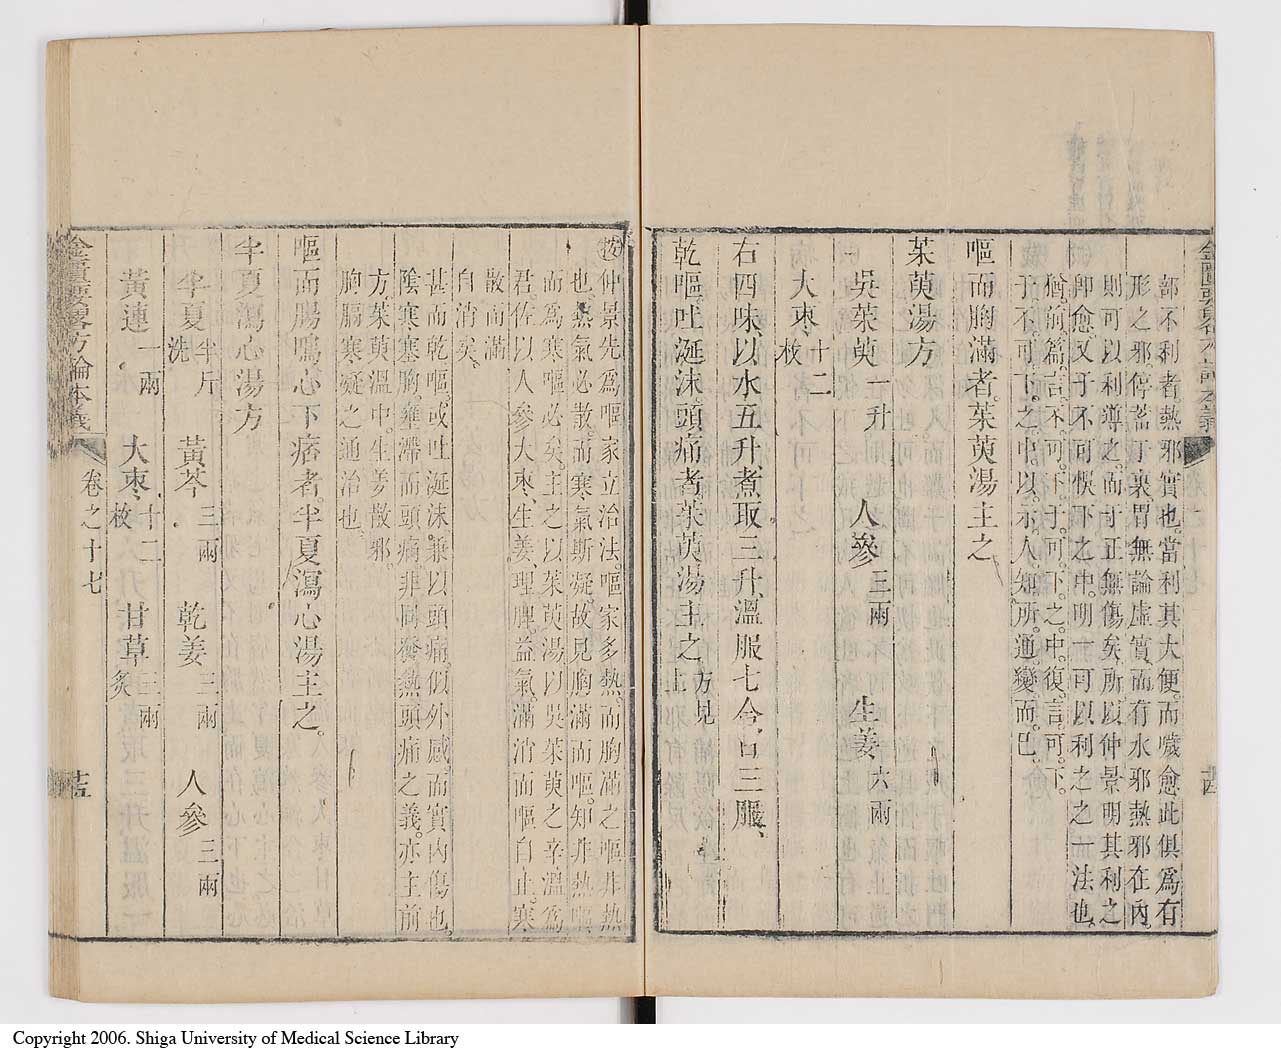 部不利者。熱邪實也。當利其大便。而噦愈此俱爲有
形之邪。停蓄于裏胃無論虛實而有水邪熱邪在內。
則可以利導之。而于正無傷矣。所以仲景明其利之
卽愈。又于不可悞下之中。明一可以利之之一法也。
猶前篇。言不可下。于可。下之。中。復。言。可。下。
于。不可。下。之。中。以。示。人。知。所。通。變。而。巳。
嘔而胸滿者。茱萸湯主之
茱萸湯方
吳茱萸一升 人參三兩 生姜六兩
大棗十二枚
右四味、以水五升、煮取三升、溫服七合、日三服、
乾嘔、吐涎沫。頭痛者、茱萸湯主之、方見上
按仲景先爲嘔家立治法。嘔家多熱。而胸滿之嘔非熱
也。熱氣必散。而寒氣斯凝。故見胸滿而嘔。知非熱嘔
而爲寒嘔必矣。主之以茱萸湯。以吳茱萸之辛溫爲
君。佐以人參大棗、生姜、理脾。益氣。滿消而嘔自止。寒
散而滿
自消矣。
甚而乾嘔。或吐涎沫。兼以頭痛。似外感。而實內傷也。
陰寒塞胸。壅滯而頭痛非同發熱頭痛之義。亦主前
方。茱萸溫中。生姜散邪。
胸膈寒凝之通治也。
嘔而腸鳴。心下痞者。半夏瀉心湯主之。
半夏瀉心湯方
半夏半斤洗 黃芩三兩 乾姜三兩 人參三兩
黃連一兩 大棗十二枚 甘草三兩炙
金匱要畧方論本義
卷之十七